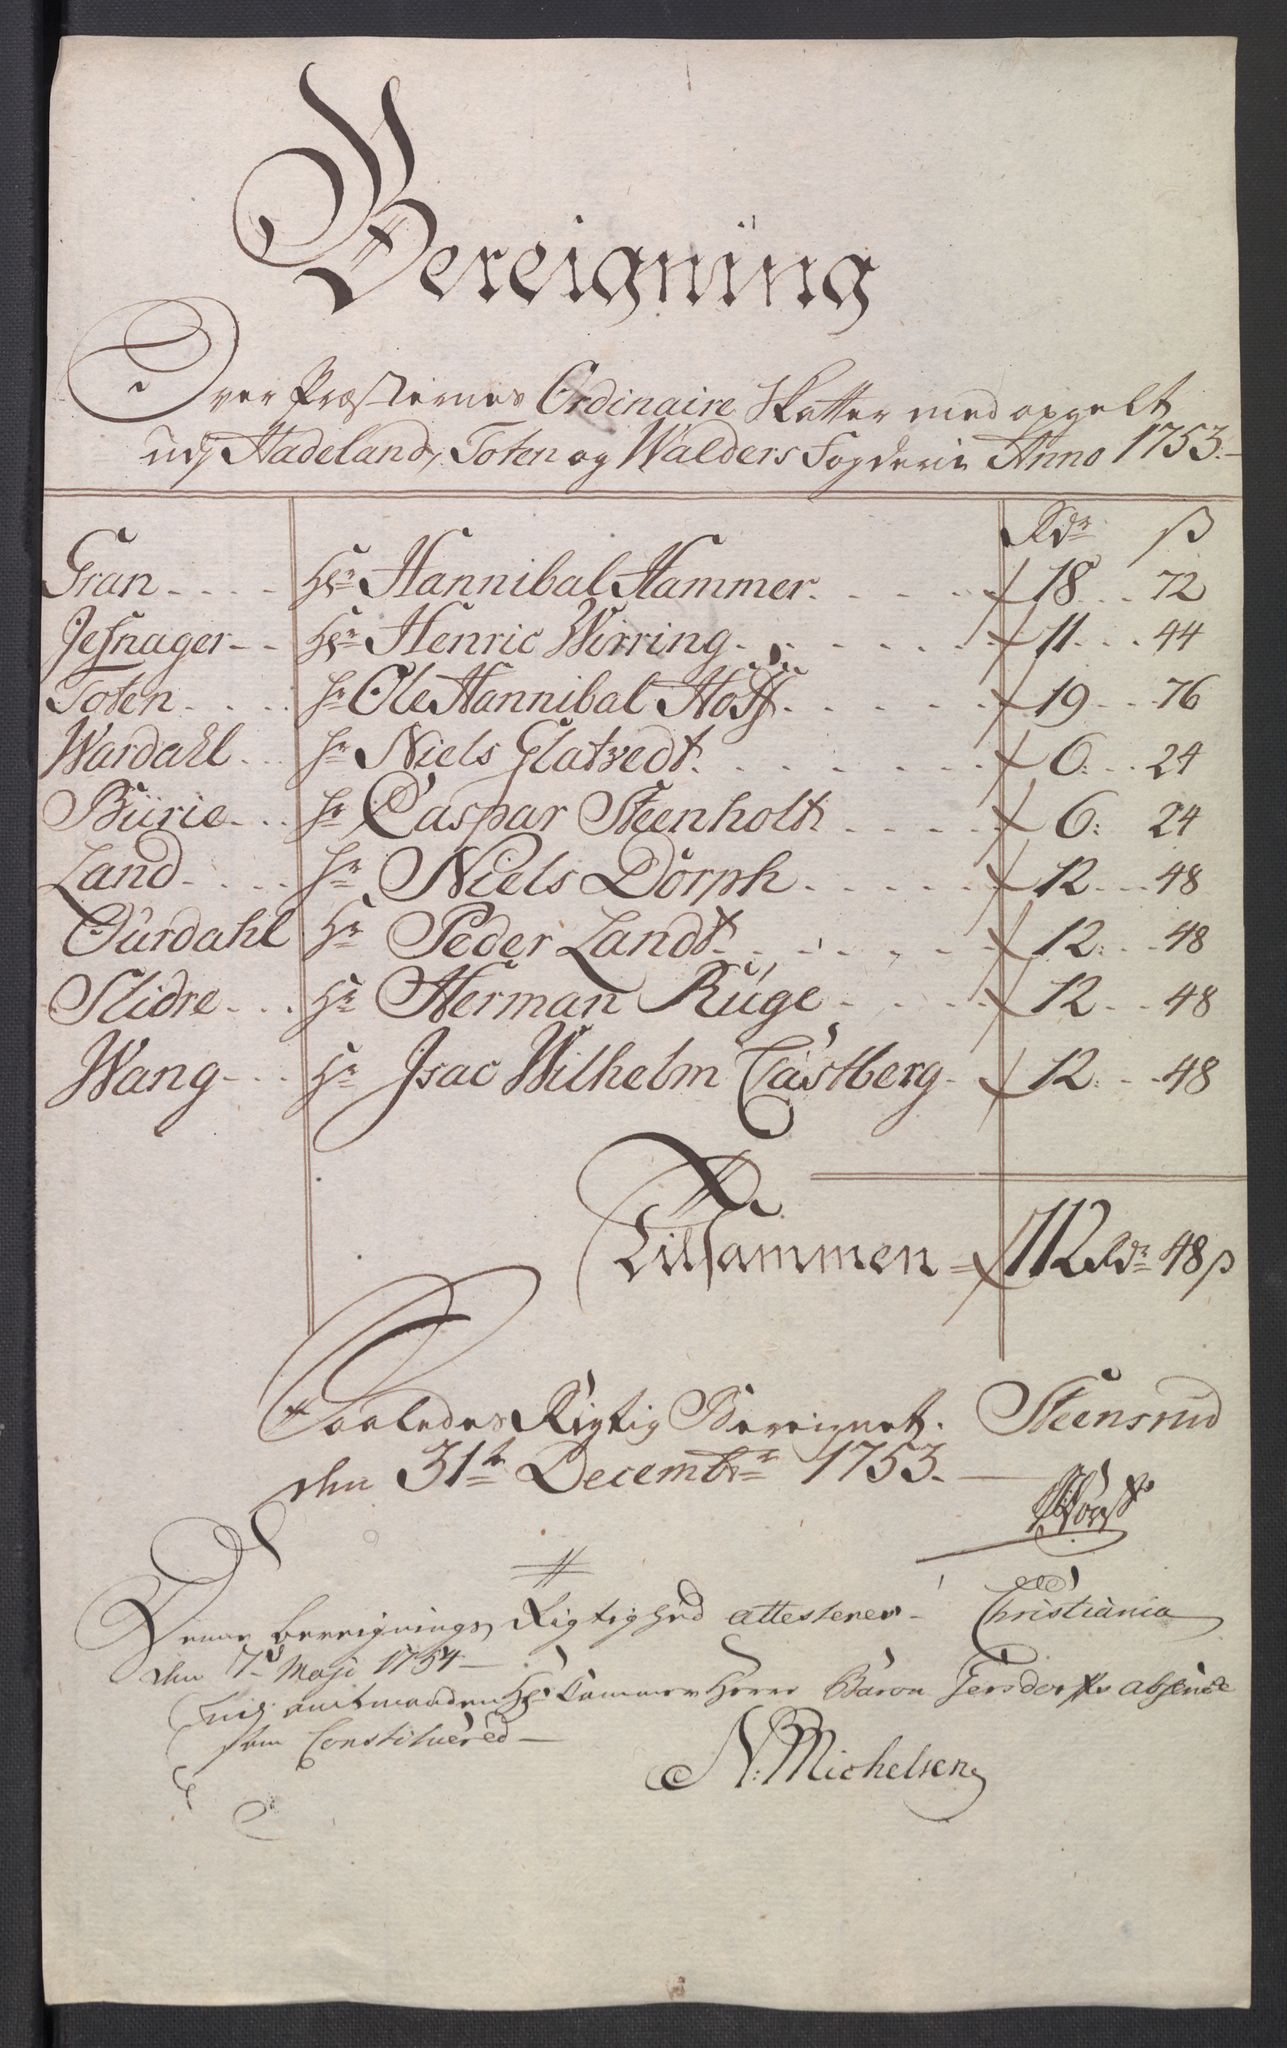 Bereigning
Over Præsternes Ordinaire Skatter med opgelt
udj Hadeland, Toten og Walders Fogderie Anno 1753.
Rdr ß
Gran Hr Hannibal Hammer 18 72
Jefnager Hr Henric Wirring 11 44
Toten Hr Ole Hannibal Hoff 19 76
Wardahl Hr Niels Glatvedt 6 24
Biirie Hr Caspar Steenholt 6 24
Land Hr Niels Dorph 12 48
Ourdahl Hr Peder Landt 12 48
Slidre Hr Herman Ruge 12 48
Wang Hr Isac Wilhelm Castberg 12 48
Tilsammen 112 Rdr 48 ß
Saaledes Rigtig Bereignet. Steensrud
den 31te Decembr 1753.
Denne bereignings Rigtighed attesterer Christiania
den 7de Maji 1754
udj amtmanden Hr Cammer Herre Baron Gersdorffs absence
som Constituered
N: Michelsen